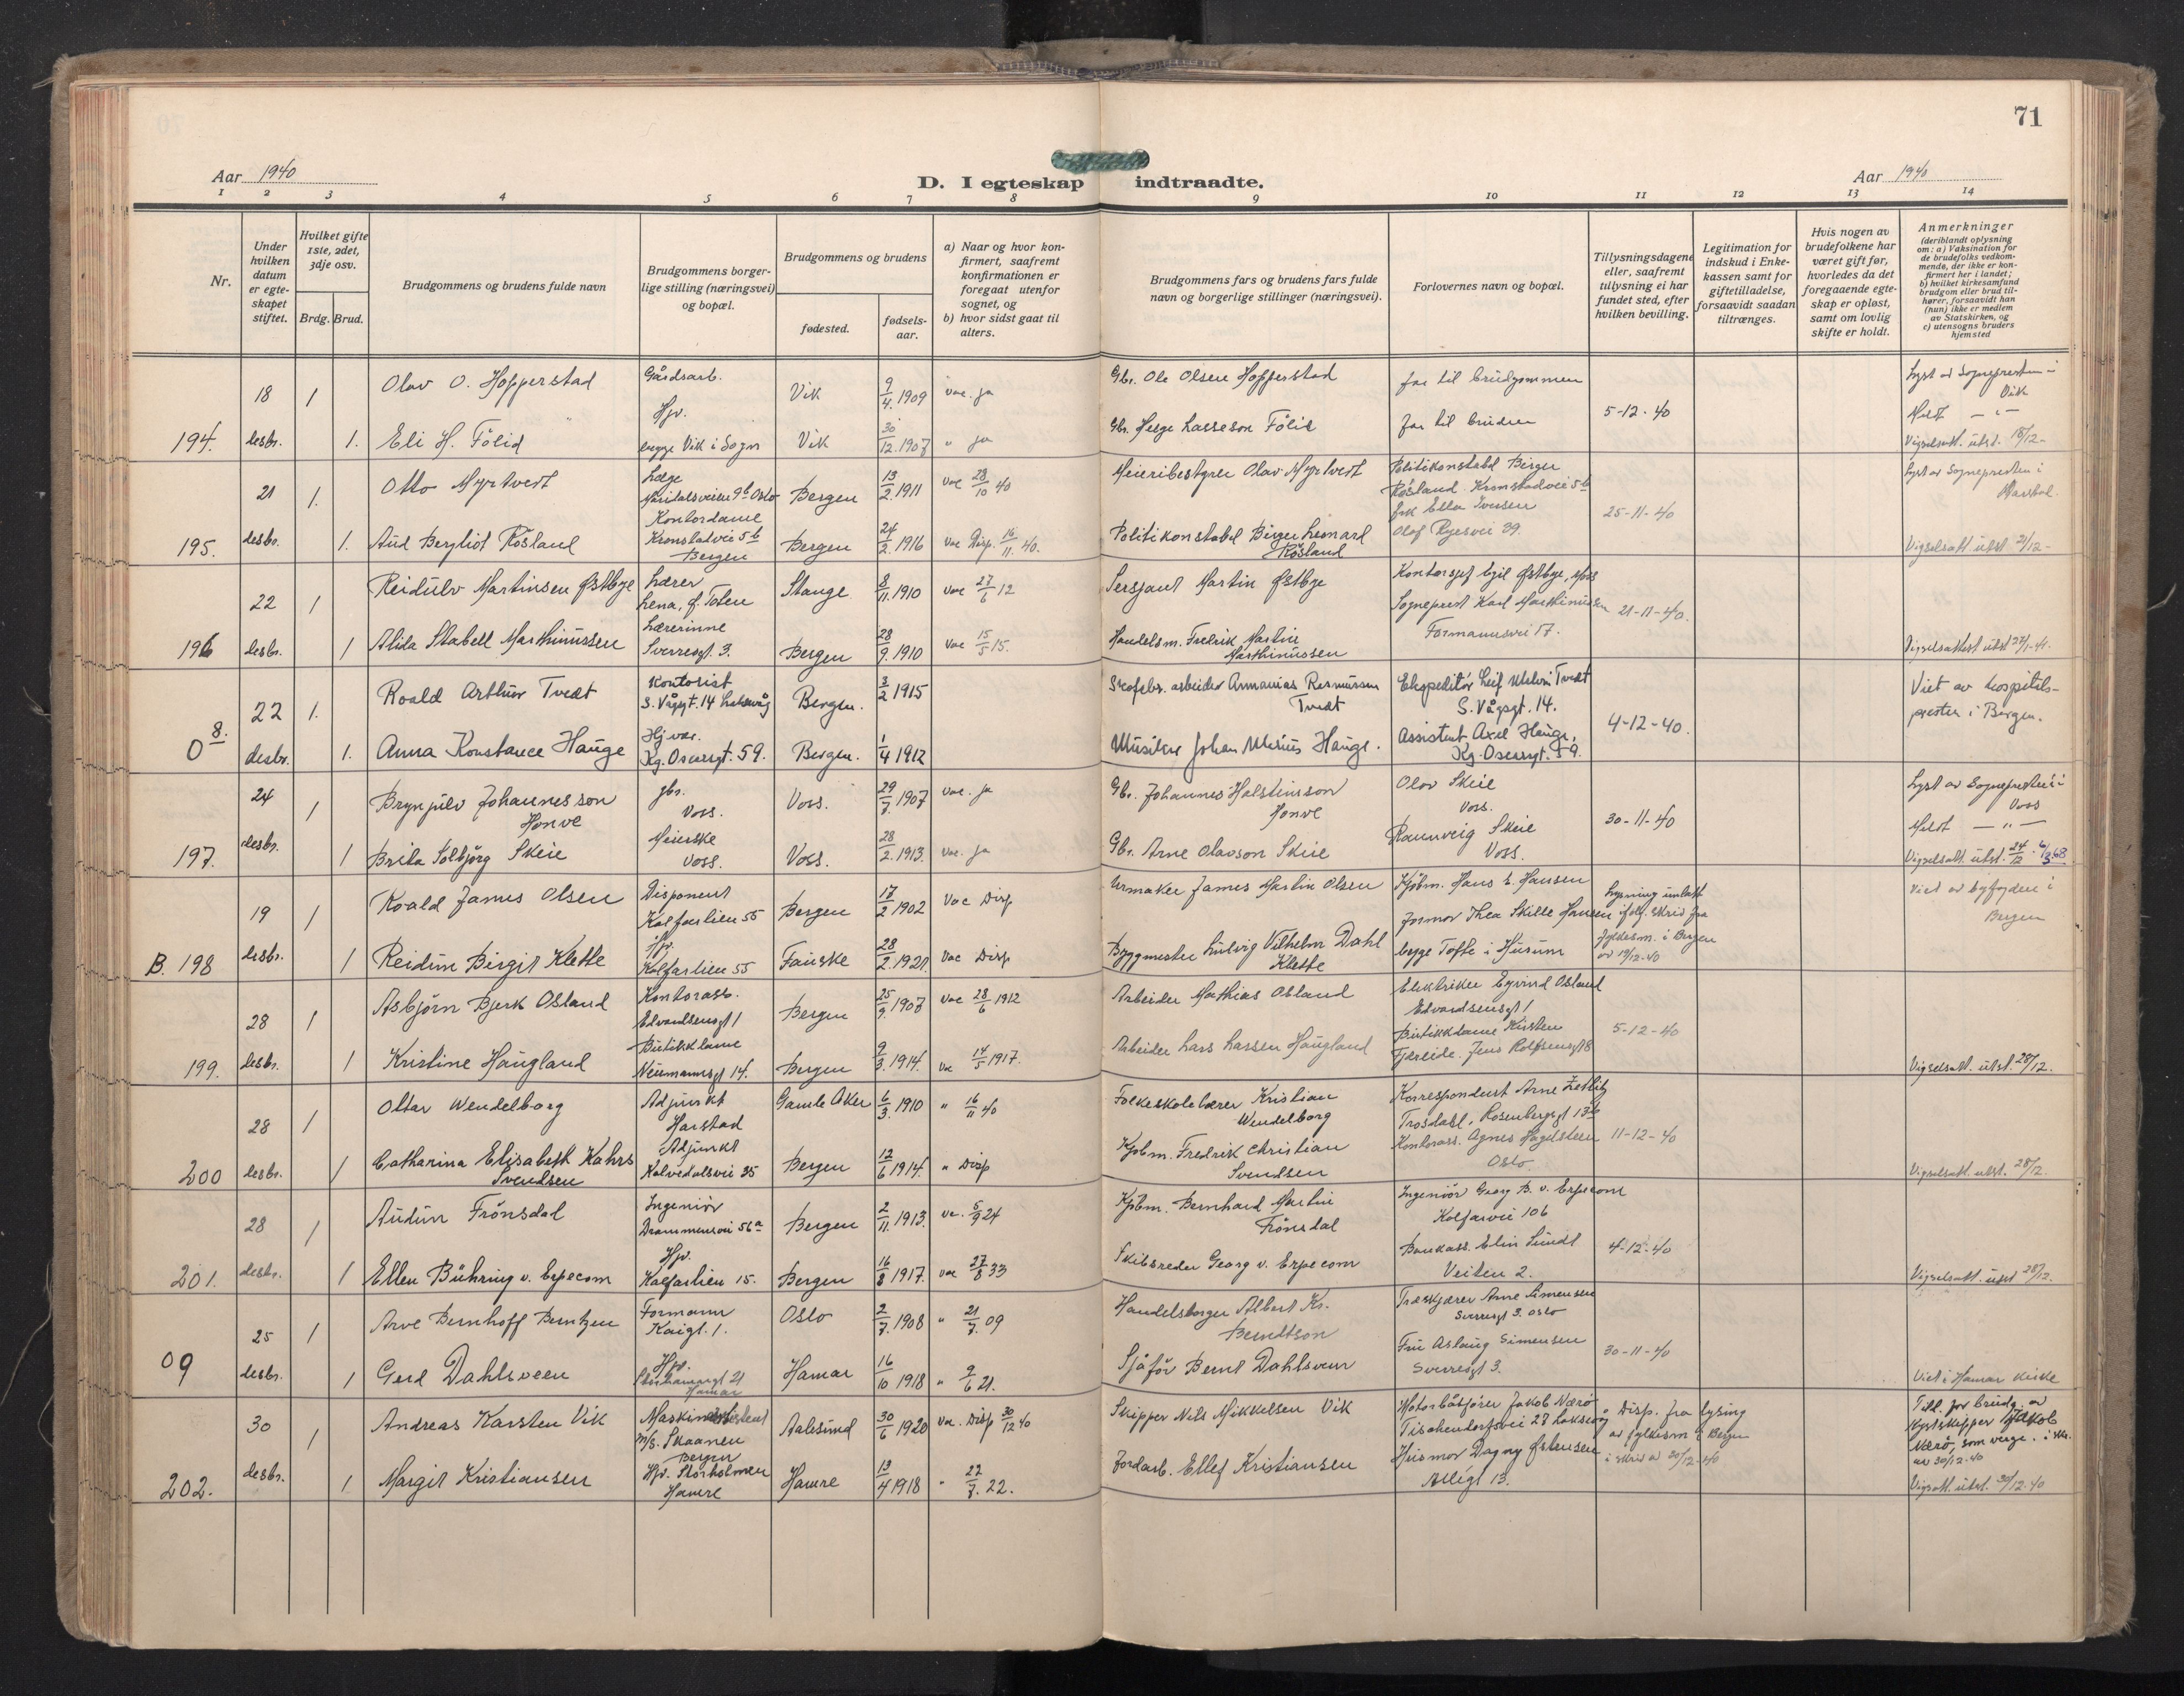 71
Aar 1940
D. I egteskap indtraadte.
Aar 1940
1 2 3 4 5 6 7 8 9 10 11 12 13 14
Nr.
Under hvilken datum er egteskapet stiftet.
Hvilket gifte 1ste, 2det, 3dje osv.
Brdg. Brud.
Brudgommens og brudens fulde navn
Brudgommens borgerlige stilling (næringsvei) og bopæl.
Brudgommens og brudens
fødested.
fødselsaar.
a) Naar og hvor konfirmert, saafremt konfirmationen er foregaat utenfor sognet, og
b) hvor sidst gaat til alters.
Brudgommens fars og brudens fars fulde navn og borgerlige stillinger (næringsvei).
Forlovernes navn og bopæl.
Tillysningsdagene eller, saafremt tillysning ei har fundet sted, efter hvilken bevilling.
Legitimation for indskud i Enkekassen samt for giftetilladelse, forsaavidt saadan tiltrænges.
Hvis nogen av brudefolkene har været gift før, hvorledes da det foregaaende egteskap er opløst, samt om lovlig skifte er holdt.
Anmerkninger
(deriblandt oplysning om: a) Vaksination for de brudefolks vedkommende, der ikke er konfirmert her i landet; b) hvilket kirkesamfund brudgom eller brud tilhører, forsaavidt han (hun) ikke er medlem av Statskirken, og c) utensogns bruders hjemsted
18 1 Olav O. Hopperstad Gårdsarb. Vik 9/4 1909 vac. ja Gbr. Ole Olsen Hopperstad far til brudgommen Lyst av Sognepresten i Vik
Hjv. 5-12-40
194. desbr. 1. Eli H. Følid begge Vik i Sogn Vik 30/12 1907 " ja Gbr. Helge Lasseson Følid far til bruden Vigselsatt. utst. 18/12-
21 1. Otto Myrtvedt Læge Maridalsveien 9b Oslo Bergen 13/2 1911 vac 28/10 40 Meieribestyrer Olav Myrtvedt Politikonstabel Birger Røsland Kronstadvei 5b Lyst av Sognepresten i
Kontordame frk Ella Iversen 25-11-40
195. desbr. 1. Aud Bergliot Røsland Kronstadvei 5b Bergen Bergen 24/2 1916 vac Disp. 16/11 40. Politikonstabel Birger Leonard Røsland Olaf Ryesvei 39 Vigselsatt utst 21/12-
22 1 Reidulv Martinsen Østbye Lærer Lena, Ø. Toten Stange 8/11 1910 vac 27/6 12 Sersjant Martin Østbye Kontorsjef Egil Østbye, Moss
Lærerinne Sogneprest Karl Marthinussen 21-11-40.
196 desbr. 1 Alida Stabell Marthinussen Sverresgt. 3. Bergen 28/9 1910 vac 15/5 15. Handelsm. Fredrik Martin Marthinussen Formannsvei 17. Vigselsattest utst 27/1-41.
22 1. Roald Arthur Tvedt Kontorist S. Vågsgt. 14 Laksevåg Bergen. 3/2 1915 Skofabr. arbeider Ammanias Rasmussen Tvedt Ekspeditør Leif Tvedt S. Vågsgt. 14. Viet av hospitalspresten i Bergen.
4-12-40.
0 8. desbr. 1. Anna Konstance Hauge Hj.vær. Kg. Oscarsgt. 59. Bergen. 1/4 1912 Musiker Johan Marius Hauge. Assistent Axel Hauge, Kg. Oscarsgt. 59.
24 1 Brynjulv Johannesson Hønve gbr. Voss. Voss. 29/7 1907 vac. ja Gbr. Johannes Holstinsson Hønve Olav Skeie Voss. Lyst av Sognepresten i Voss
30-11-40
197. desbr. 1 Brita Solbjørg Skeie Meierske Voss. Voss. 28/2 1913. vac. ja Gbr. Arne Olavson Skeie Rannveig Skeie Voss. Vigselsatt. utst. 24/12. 6/3 68
19 1 Roald James Olsen Disponent Kalfarlien 55 Bergen 17/2 1902 Vac Disp Urmaker James Martin Olsen Kjøbm. Hans E. Hansen Lysning unlatt ifølg. skriv fra fylkesm. i Bergen av 19/12-40 Viet av byfogden i Bergen
B. 198 desbr. 1 Reidun Birgit Klette Hjv. Kalfarlien 55 Fauske 28/2 1921. vac Disp Byggmester Ludvig Vilhelm Dahl Klette formor Thea Skille Hansen begge Tofte i Hurum
28 1 Asbjørn Bjerk Osland Kontorass. Edvardsensgt 1 Bergen 25/9 1907 vac 28/6 1912 Arbeider Mathias Osland Elektriker Eyvind Osland Edvardsensgt 1
5-12-40
199. desbr. 1 Kristine Haugland Butikkdame Neumannsgt 14. Bergen 9/3 1914. vac 14/5 1917. Arbeider Lars Larsen Haugland Butikkdame Kirsten Fjæreide. Jens Rolfsensgt 8 Vigselsatt. utst. 28/12.
28 1 Ottar Wendelborg Adjunkt Harstad Gamle Aker 6/3 1910 " 16/11 40 Folkeskolelærer Kristian Wendelborg Korrespondent Arne Zetlitz Trosdahl, Rosenbergsgt 13b
200 desbr. 1 Catharina Elisabeth Kahrs Svendsen Adjunkt Kalvedalsvei 35 Bergen 12/6 1914. " Disp Kjøbm. Fredrik Christian Svendsen Kontorass. Agnes Hagelsteen Oslo. 11-12-40 Vigselsatt. utst. 28/12.
28 1 Audun Frønsdal Ingeniør Drammensvei 56a Bergen 2/11 1913. vac. 5/9 24 Kjøbm. Bernhard Martin Frønsdal Ingeniør Georg B. v. Erpecom Kalfarvei 106
201. desbr. 1 Ellen Bühring v. Erpecom Hjv. Kalfarlien 15. Bergen 16/8 1917. vac 27/8 33 Skibsreder Georg v. Erpecom Bankass. Elin Sundt Veiten 2. 4-12-40 Vigselsatt. utst 28/12.
25 1 Arve Bernhoff Berntzen Formann Kaigt. 1. Oslo 2/7 1908 " 21/7. 09 Handelsborger Albert Kr. Berndtson Træskjærer Arne Simensen Sverresgt 3. Oslo
09 desbr. 1 Gerd Dahlsveen Hjv. Hamar Hamar 16/10 1918 " 9/6 21. Sjåfør Bernt Dahlsveen Fru Aslaug Simensen Sverresgt 3. 30-11-40 Viet i Hamar kirke
30 1 Andreas Karsten Vik Maskinassistent m/s. Skaanen Bergen Aalesund 30/6 1920 vac. Disp 30/12 40 Skipper Nils Mikkelsen Vik Motorbåtfører Jakob Nærø Tischendorfsvei 27 Laksevåg Disp. fra lysing av fylkesm i Bergen i skriv av 30/12-40 Till. for brudg. av Kystskipper Jakob Nærø, som verge.
av 30/12-40
202. desbr. 1 Margit Kristiansen Hjv. Storholmen Hamre Hamre 13/4 1918 " 22/7. 22. Jordarb. Ellef Kristiansen Husmor Dagny Østensen Allégt 13. Vigsatt. utst. 30/12-40